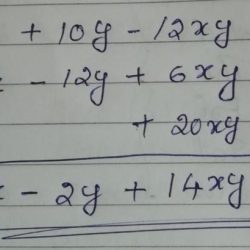 + 10y - 12xy
- 12y + 6xy
+ 20xy
- 2y + 14xy